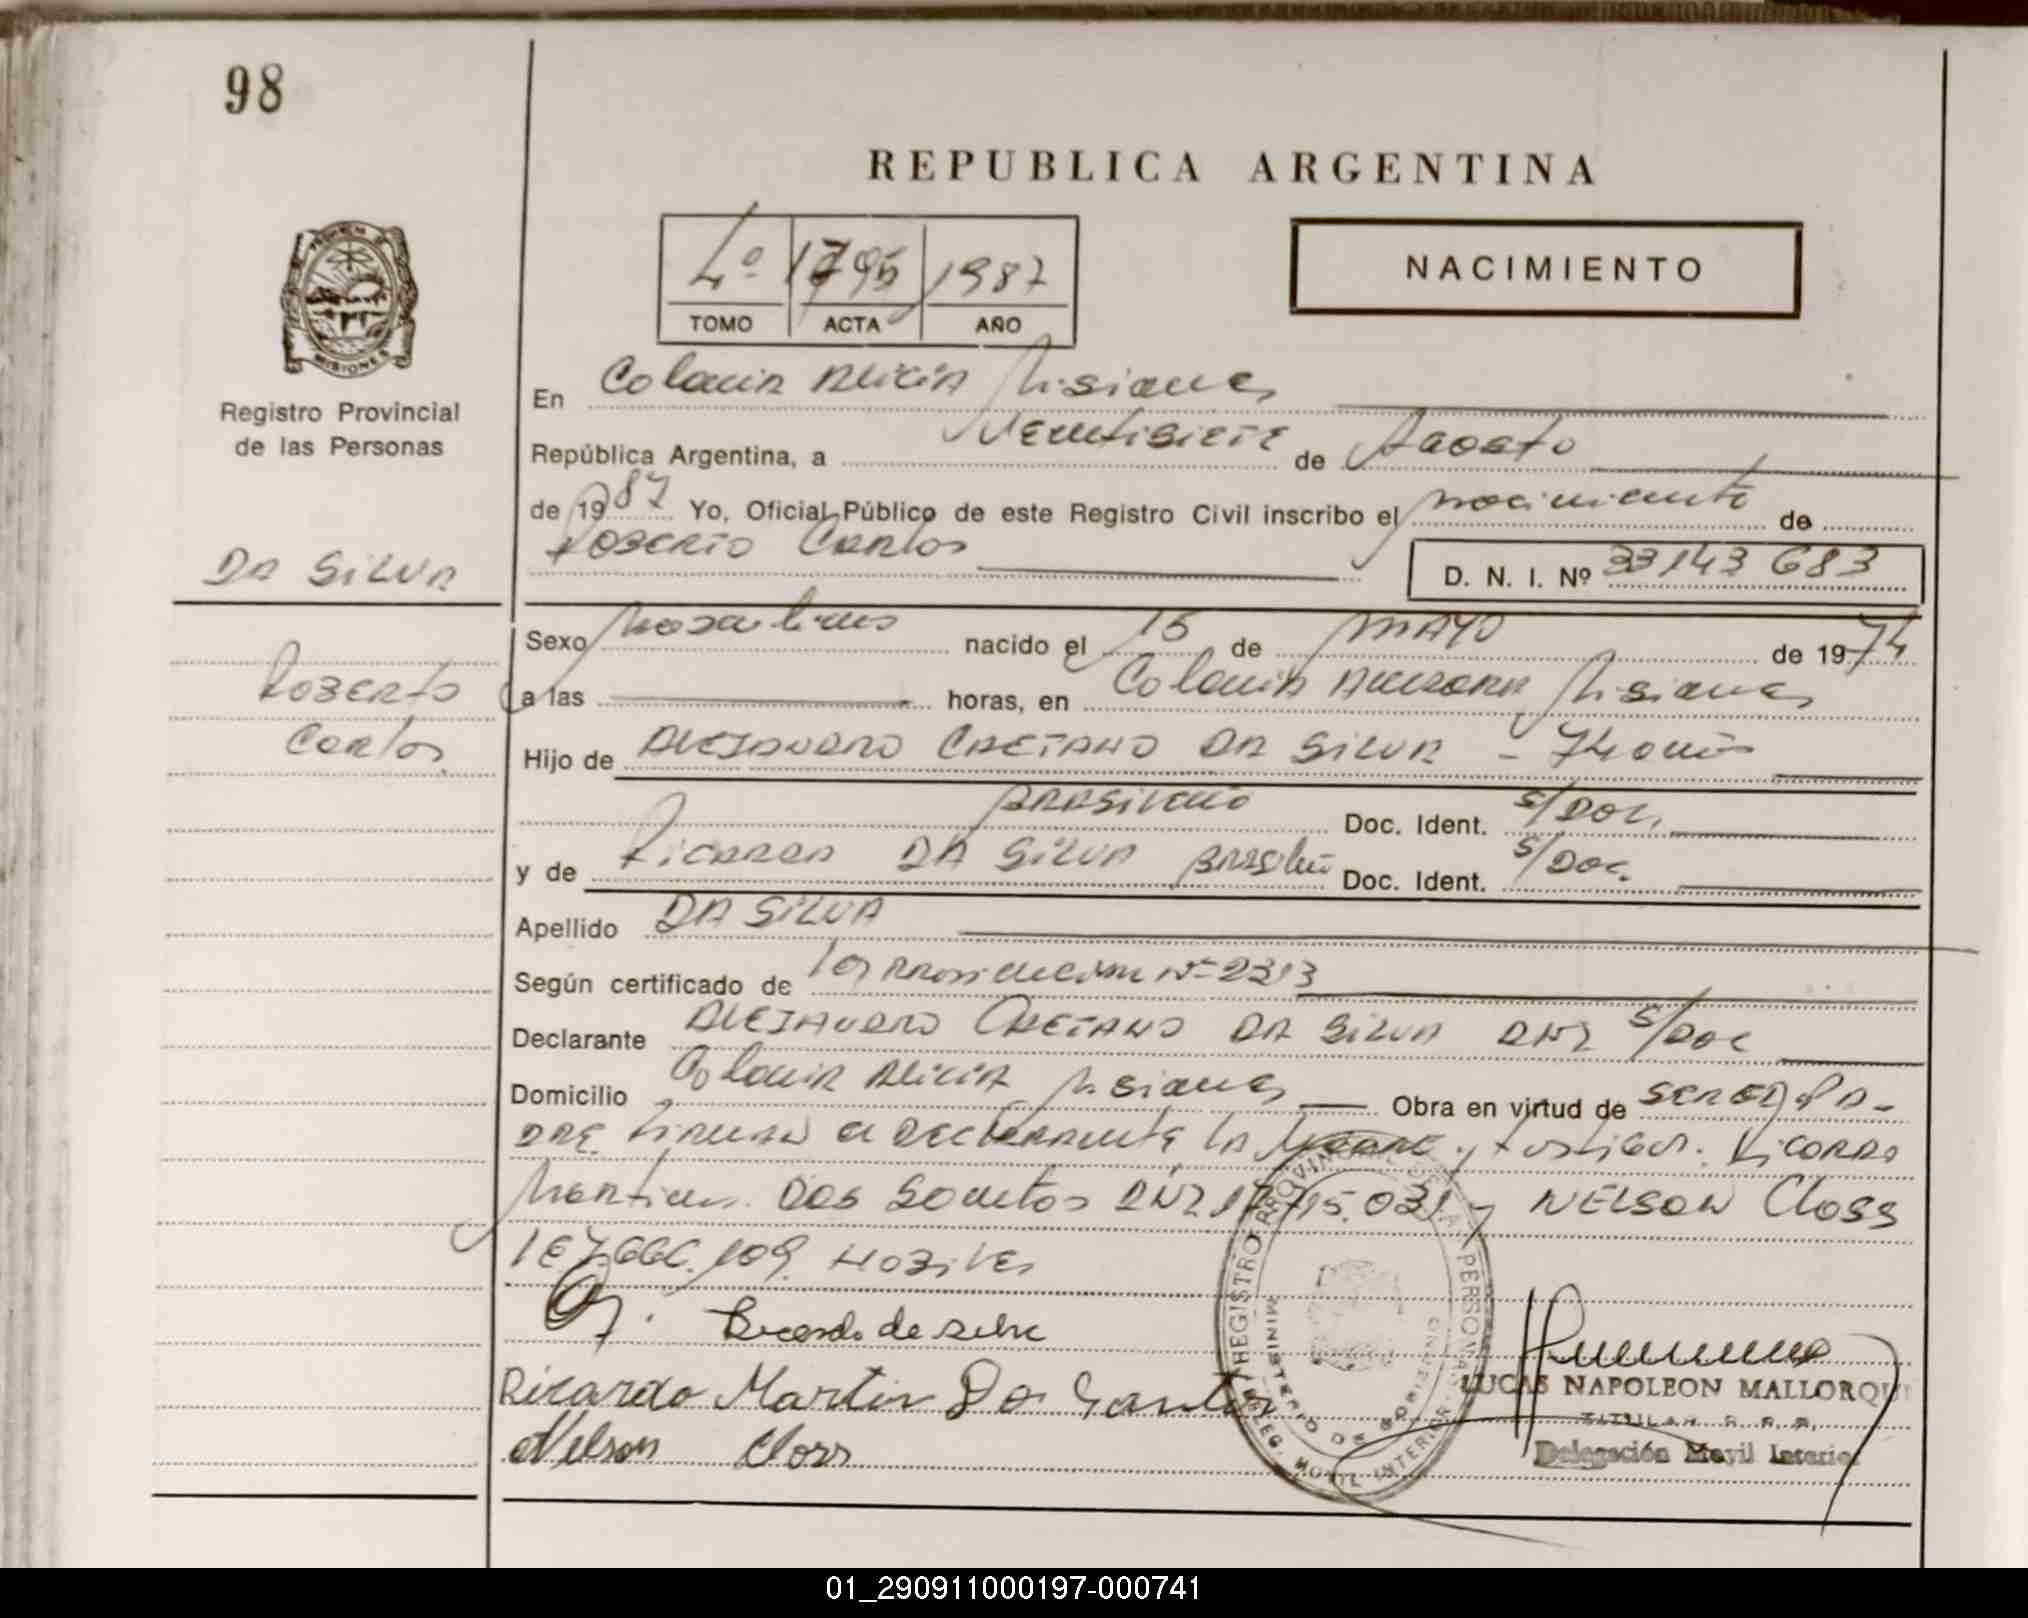 98
REPUBLICA ARGENTINA
4º 1795 1987
TOMO ACTA AÑO
NACIMIENTO
PROVINCIA DE
MISIONES
Registro Provincial
de las Personas
En Colonia Alicia Misiones
República Argentina, a Veintisiete de Agosto
de 1987 Yo, Oficial Público de este Registro Civil inscribo el nacimiento de
Roberto Carlos
D. N. I. Nº 33143683
Da Silva
Roberto
Carlos
Sexo Masculino nacido el 15 de MAYO de 1974
a las horas, en Colonia Aurora Misiones
Hijo de Alejandro Caetano Da Silva - 74 años
Brasileño Doc. Ident. s/Doc.
y de Ricarda Da Silva Doc. Ident. s/Doc.
Apellido Da Silva
Según certificado de Nº 2313
Declarante Alejandro Caetano Da Silva DNI s/Doc
Domicilio Colonia Alicia Misiones Obra en virtud de ser el Pa-
dre Firman el Declarante la Madre y testigos. Ricardo
Martin Dos Santos DNI 17.715.031 y Nelson Closs
Ricardo Martin Dos Santos
Nelson Closs
REGISTRO PROVINCIAL DE LAS PERSONAS
MINISTERIO DE GOBIERNO
DELEG. MOVIL INTERIOR
LUCAS NAPOLEON MALLORQUI
TITULAR R. P. P.
Delegación Movil Interior
01_290911000197-000741